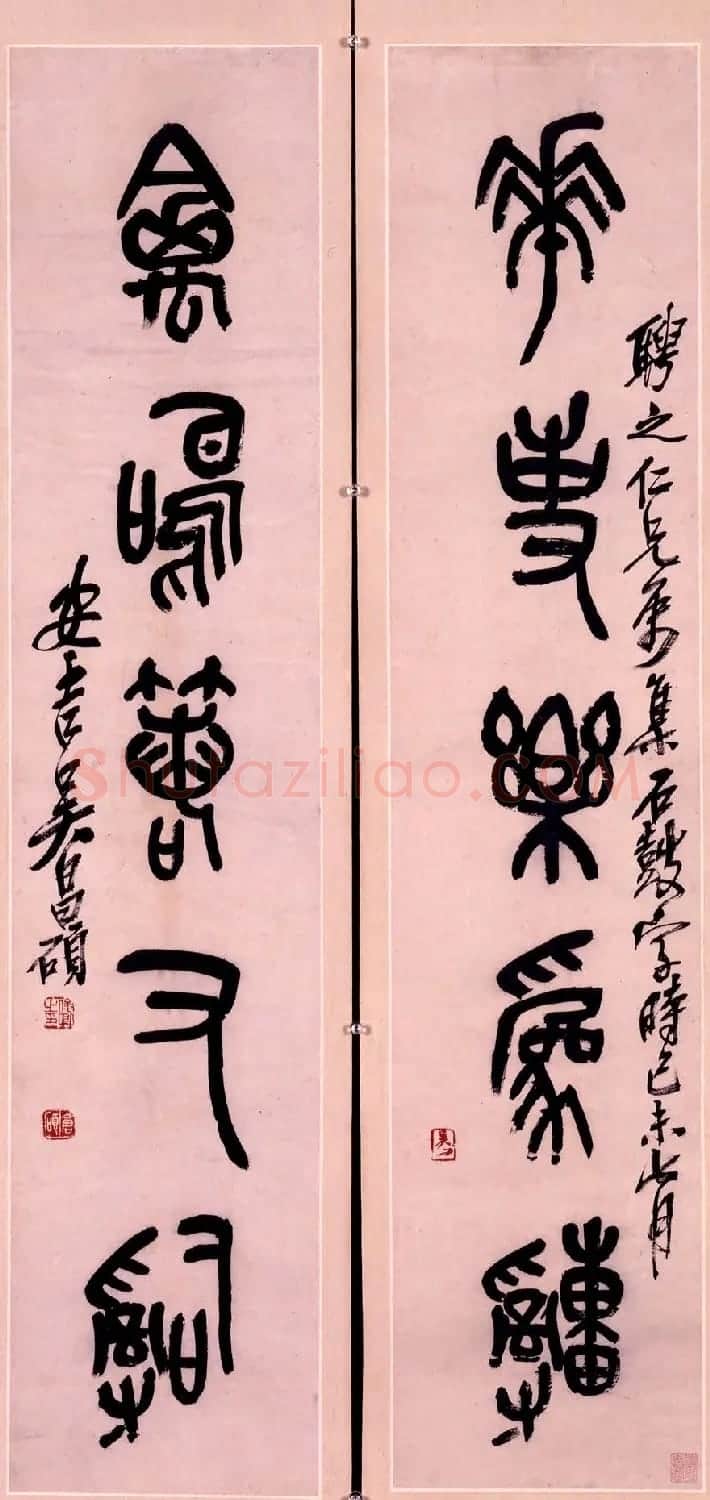 華事樂爲
聘之仁兄屬集石鼓字時己未七月
禽鳴又𤔲
安吉吳昌碩
Shufaziliao.COM